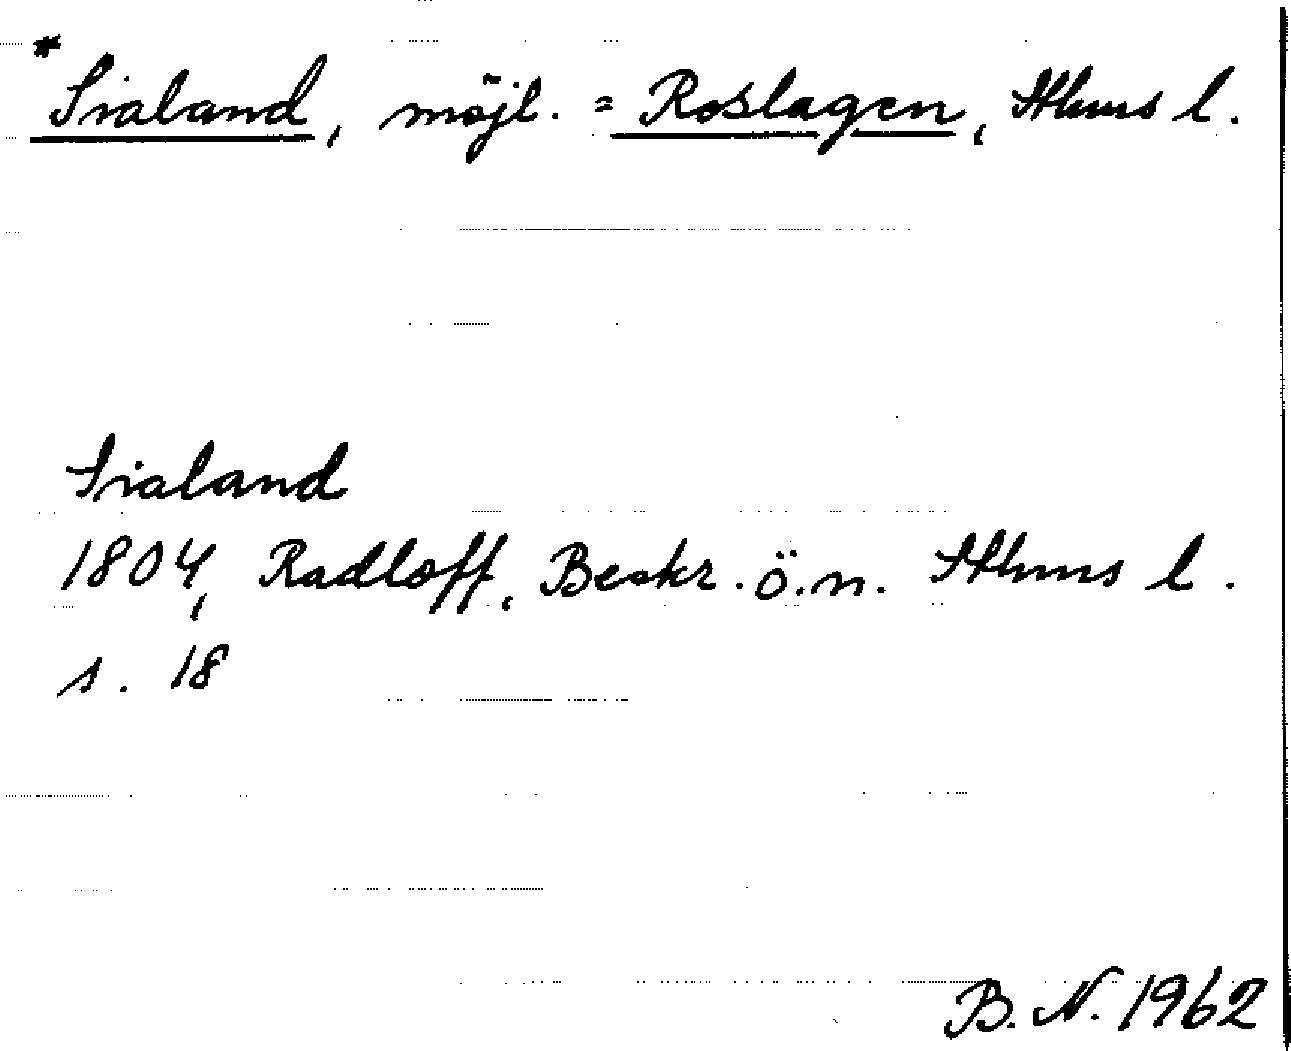 *Sialand, möjl. = Roslagen, Sthms l.
Sialand
1804, Radloff, Beskr. ö. n. Sthms l.
s. 18
B. N. 1962